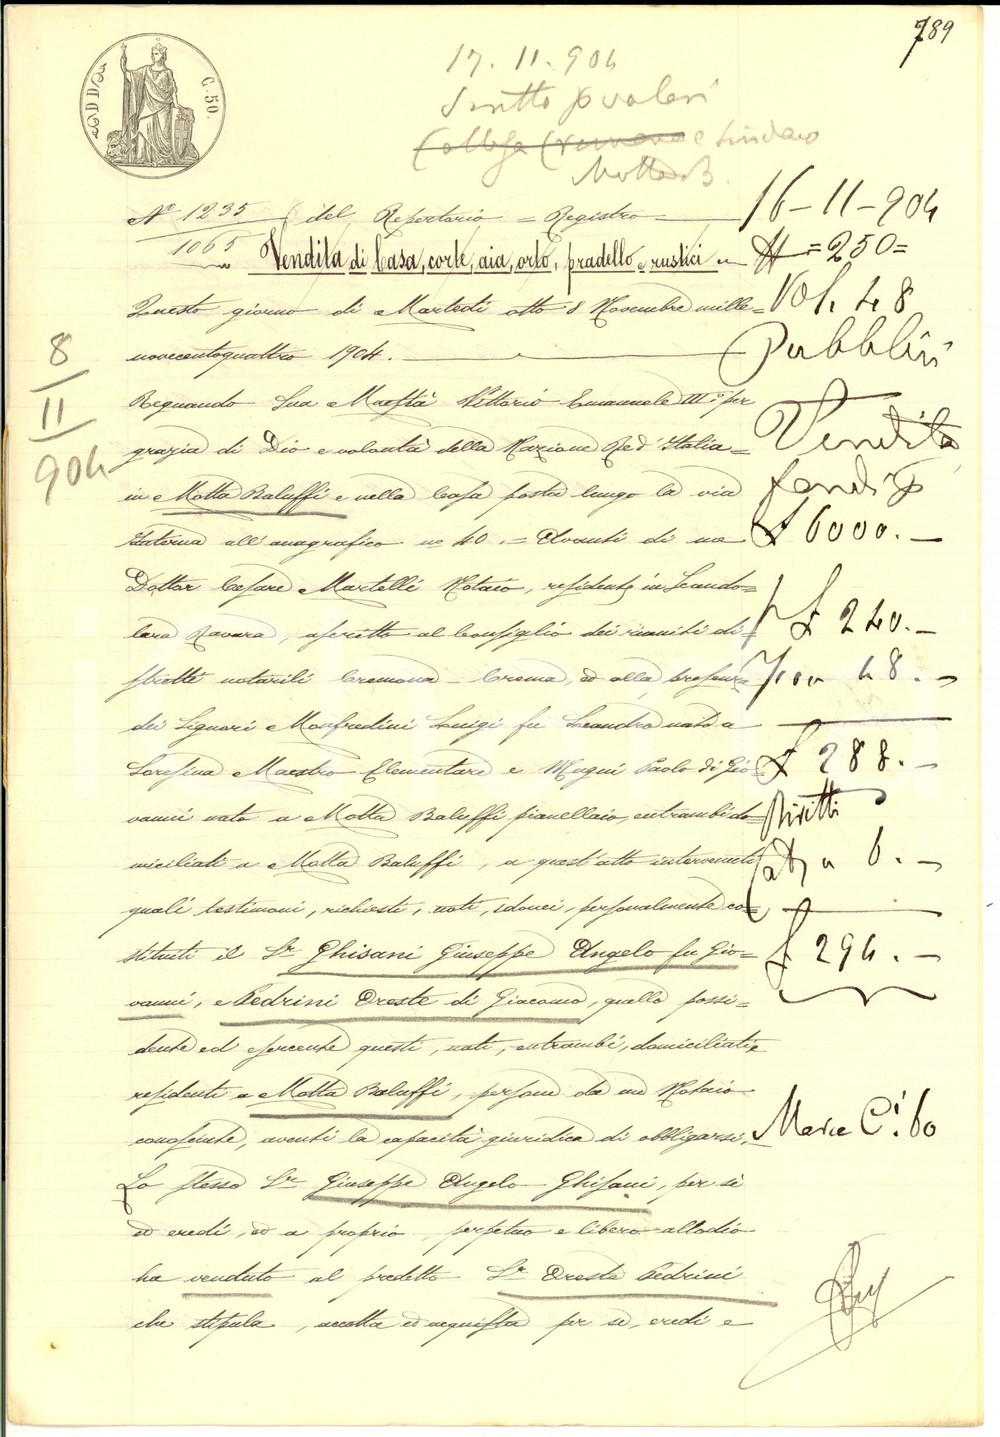 789
C. 50.
17. 11. 904
Collega e Sindaco
Motta B.
Nº 1235 / 1065 del Repertorio = Registro
Vendita di Casa, corte, aia, orto, pradello e rustici
Questo giorno di Martedì otto 8 Novembre mille=
novecentoquattro 1904.
Regnando Sua Maestà Vittorio Emanuele III.º per
grazia di Dio e volontà della Nazione Re d'Italia =
in Motta Baluffi e nella Casa posta lungo la via
interna all'anagrafico nº 40. = Avanti di me
Dottor Cesare Martelli Notaio, residente in Scando=
lara Ravara, ascritto al Consiglio dei riuniti di=
stretti notarili Cremona - Crema, ed alla presenza
dei Signori Manfredini Luigi fu Leandro nato a
Soresina Maestro Elementare e Mugni Paolo di Gio=
vanni nato a Motta Baluffi pianellaio, entrambi do=
miciliati a Motta Baluffi, a quest'atto intervenuti
quali testimoni, richiesti, noti, idonei, personalmente co=
stituiti il Sr Ghisani Giuseppe Angelo fu Gio=
vanni, e Pedrini Oreste di Giacomo, quello possi=
dente ed esercente questi, nati, entrambi, domiciliati e
residenti a Motta Baluffi, persone da me Notaio
conosciute, aventi la capacità giuridica di obbligarsi.
Lo stesso Sr Giuseppe Angelo Ghisani, per sè
ed eredi, ed a proprio, perpetuo e libero allodio
ha venduto al predetto Sr Oreste Pedrini
che stipula, accetta ed acquista per sè, eredi e
8
11
904
16-11-904
# = 250 =
Vol. 48
Pubblici
Vendita
fondi
£ 6000.-
£ 240.-
48.-
£ 288.-
6.-
£ 294.-